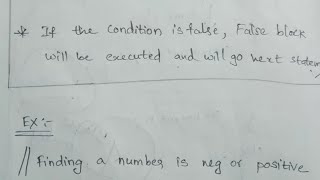 * If the condition is false, False block
will be executed and will go next statem
Ex:-
// Finding a number is neg or positive